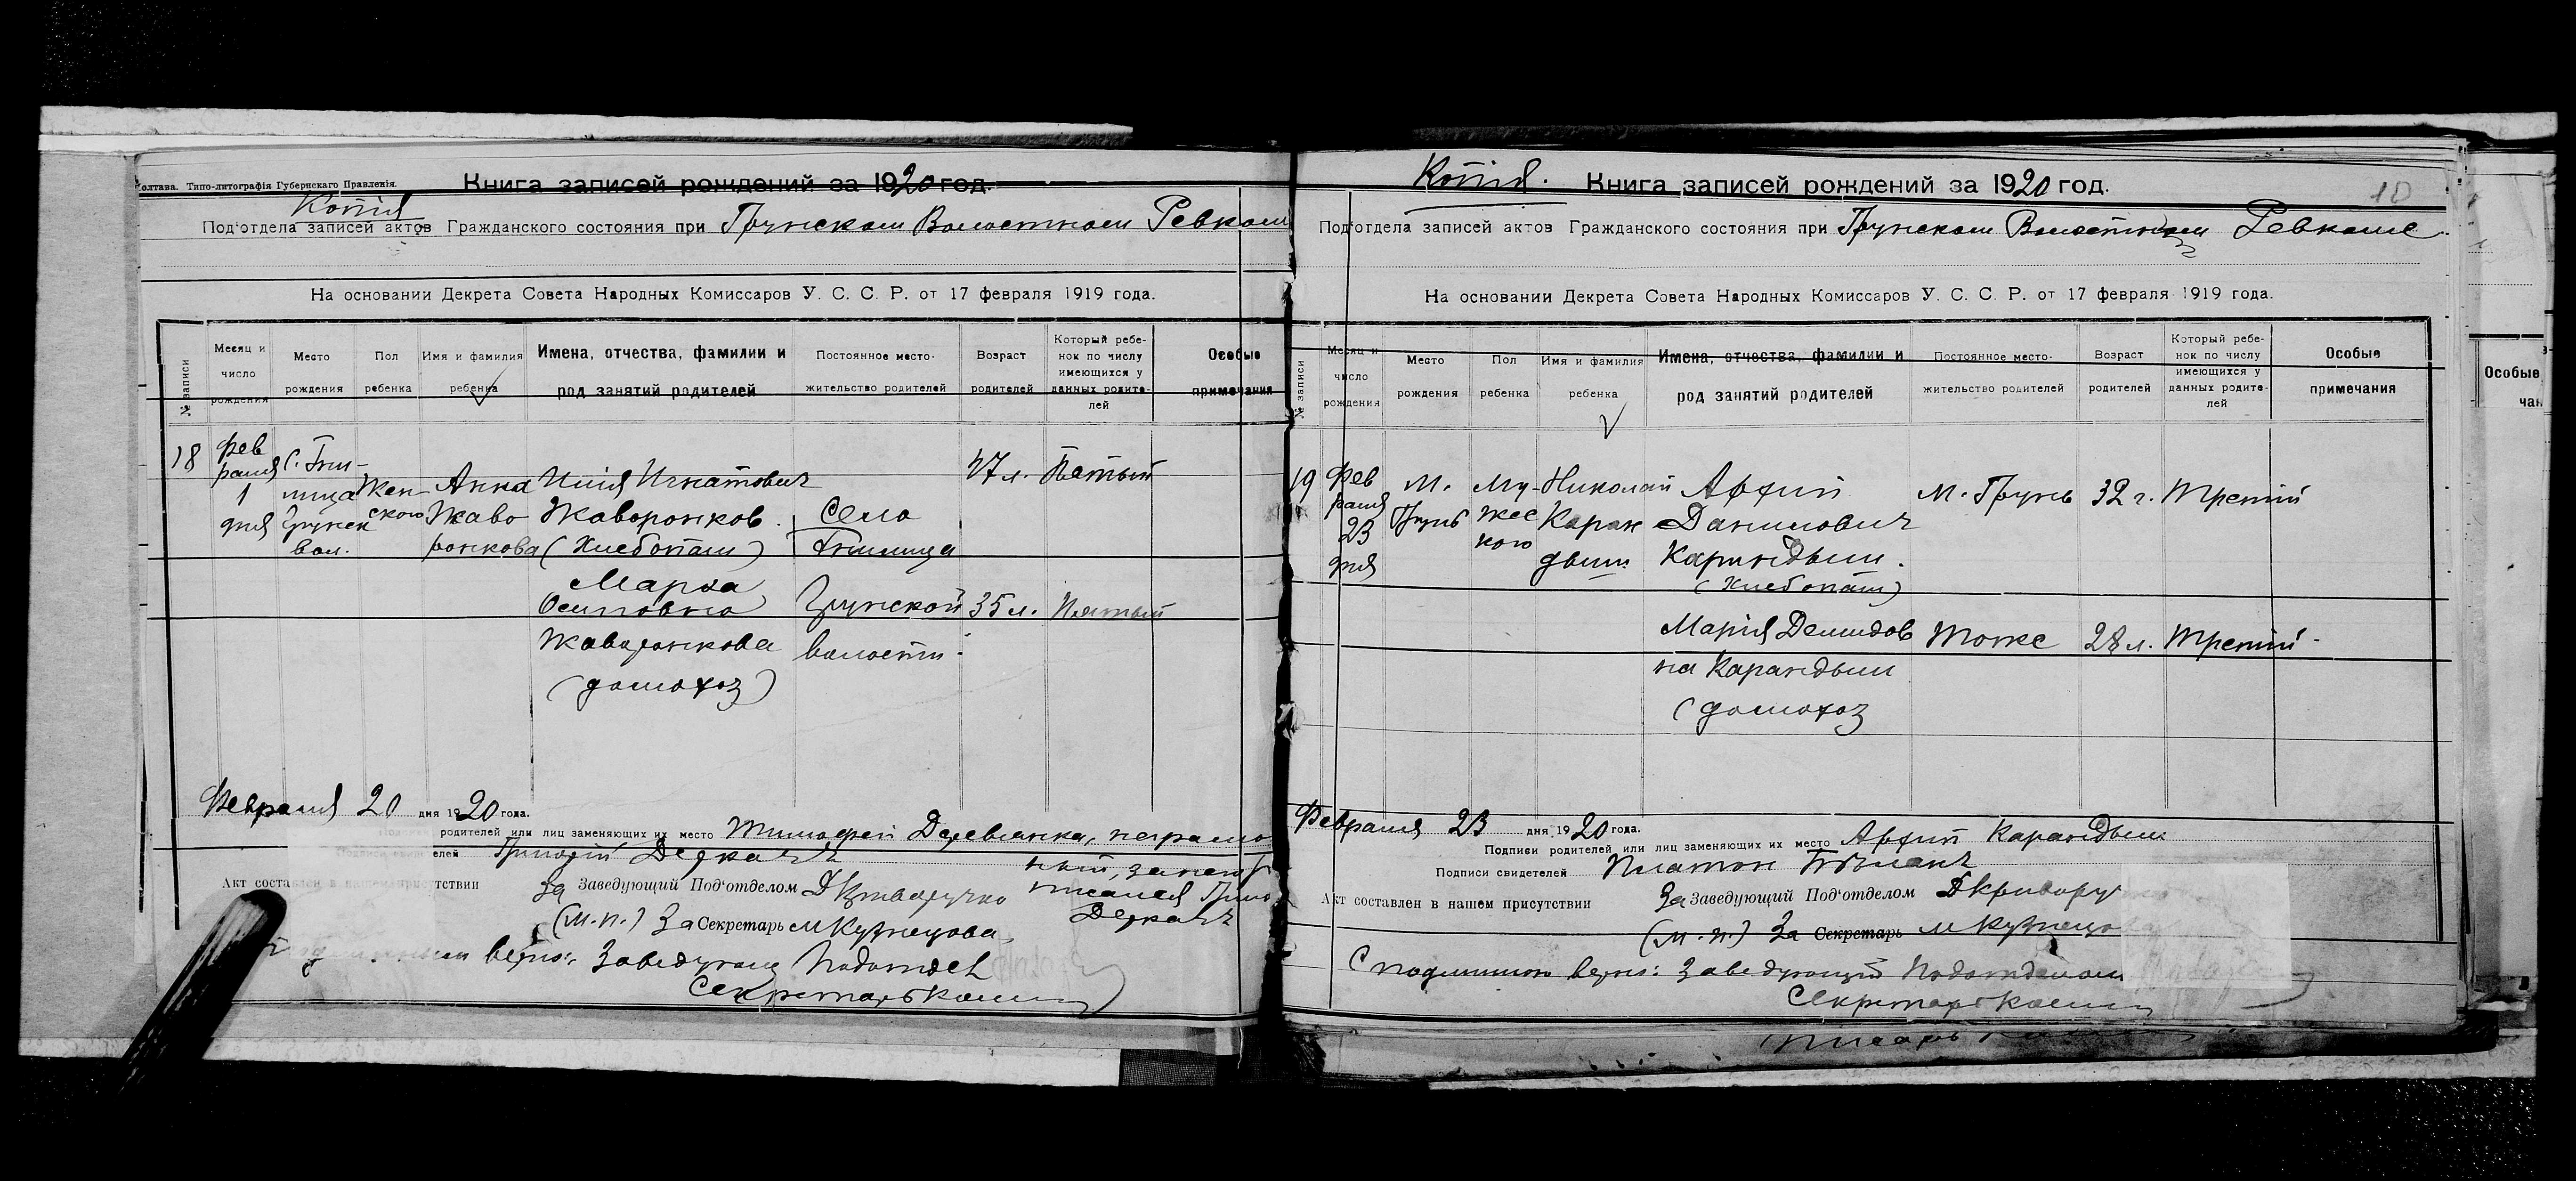 олтава. Типо-литографія Губернскаго Правленія.
Книга записей рождений за 1920 год.
Копія
Под'отдела записей актов Гражданского состояния при Грунском Волостном Ревком
На основании Декрета Совета Народных Комиссаров У. С. С. Р. от 17 февраля 1919 года.
№ записи
Месяц и число рождения
Место рождения
Пол ребенка
Имя и фамилия ребенка
Имена, отчества, фамилии и род занятий родителей
Постоянное место-жительство родителей
Возраст родителей
Который ребе-нок по числу имеющихся у данных родите-лей
Особые примечания
18
Фев
раля
1
дня
Грунск
вол.
Жен-
ского
Анна
Жаво
ронкова
Илія Игнатович
Жаворонков.
(Хлебопаш)
Село
47 л.
Пятый
Марфа
Осиповна
Жаворонкова
(домохоз)
Грунской
волости.
35 л.
Пятый
Февраля 20 дня 1920 года.
родителей или лиц заменяющих их место Тимофей Деревянка, неграмот
ный, за него
Григорій Деркачъ
Деркачъ
Акт составлен в нашем присутствии
За Заведующий Под'отделом Д Криворучко
(м.п.) За Секретарь М Кузнецова
верно: Заведующ Подотдел
Секретарь
Копія.
Книга записей рождений за 1920 год.
10
Под'отдела записей актов Гражданского состояния при Грунском Волостном Ревкоме
На основании Декрета Совета Народных Комиссаров У. С. С. Р. от 17 февраля 1919 года.
№ записи
Месяц и число рождения
Место рождения
Пол ребенка
Имя и фамилия ребенка
Имена, отчества, фамилии и род занятий родителей
Постоянное место-жительство родителей
Возраст родителей
Который ребе-нок по числу имеющихся у данных родите-лей
Особые примечания
19
Фев
раля
23
дня
М.
Грунь
Му-
жес
кого
Николай
Каран
дыш
Архип
Данилович
Карандыш.
(Хлебопаш)
М. Грунь
32 г.
Третій
Марія Демидов
на Карандыш
(домохоз
Тоже
28 л.
Третій
Февраля 23 дня 1920 года.
Подписи родителей или лиц заменяющих их место Архип Карандыш
Подписи свидетелей Платон
Акт составлен в нашем присутствии
За Заведующий Под'отделом Д Кривору
(м.п.) За Секретарь М Кузнецо
С подлинною верно: Заведующий Подотделом
Секретарь
Особые